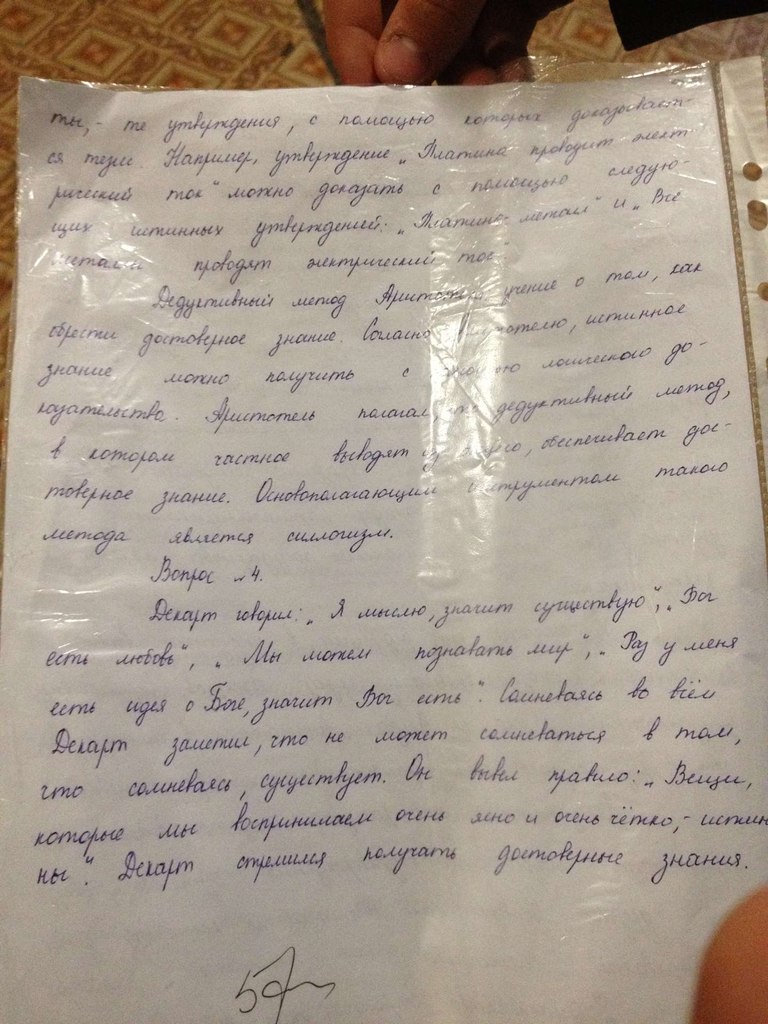 ты, - те утверждения, с помощью которых доказывает-
ся тезис. Например, утверждение „Платина проводит элект-
рический ток" можно доказать с помощью следую-
щих истинных утверждений: „Платина-металл" и „Все
металлы проводят электрический ток".
Дедуктивный метод Аристотеля учение о том, как
обрести достоверное знание. Согласно Аристотелю, истинное
знание можно получить с помощью логического до-
казательства. Аристотель полагал, что дедуктивный метод,
в котором частное выводят из общего, обеспечивает дос-
товерное знание. Основополагающим инструментом такого
метода является силлогизм.
Вопрос №4.
Декарт говорил: „Я мыслю, значит существую", „Бог
есть любовь", „Мы можем познавать мир", „Раз у меня
есть идея о Боге, значит Бог есть". Сомневаясь во всём
Декарт заметил, что не может сомневаться в том,
что сомневаясь, существует. Он вывел правило: „Вещи,
которые мы воспринимаем очень ясно и очень чётко, - истин
ны". Декарт стремился получать достоверные знания.
5